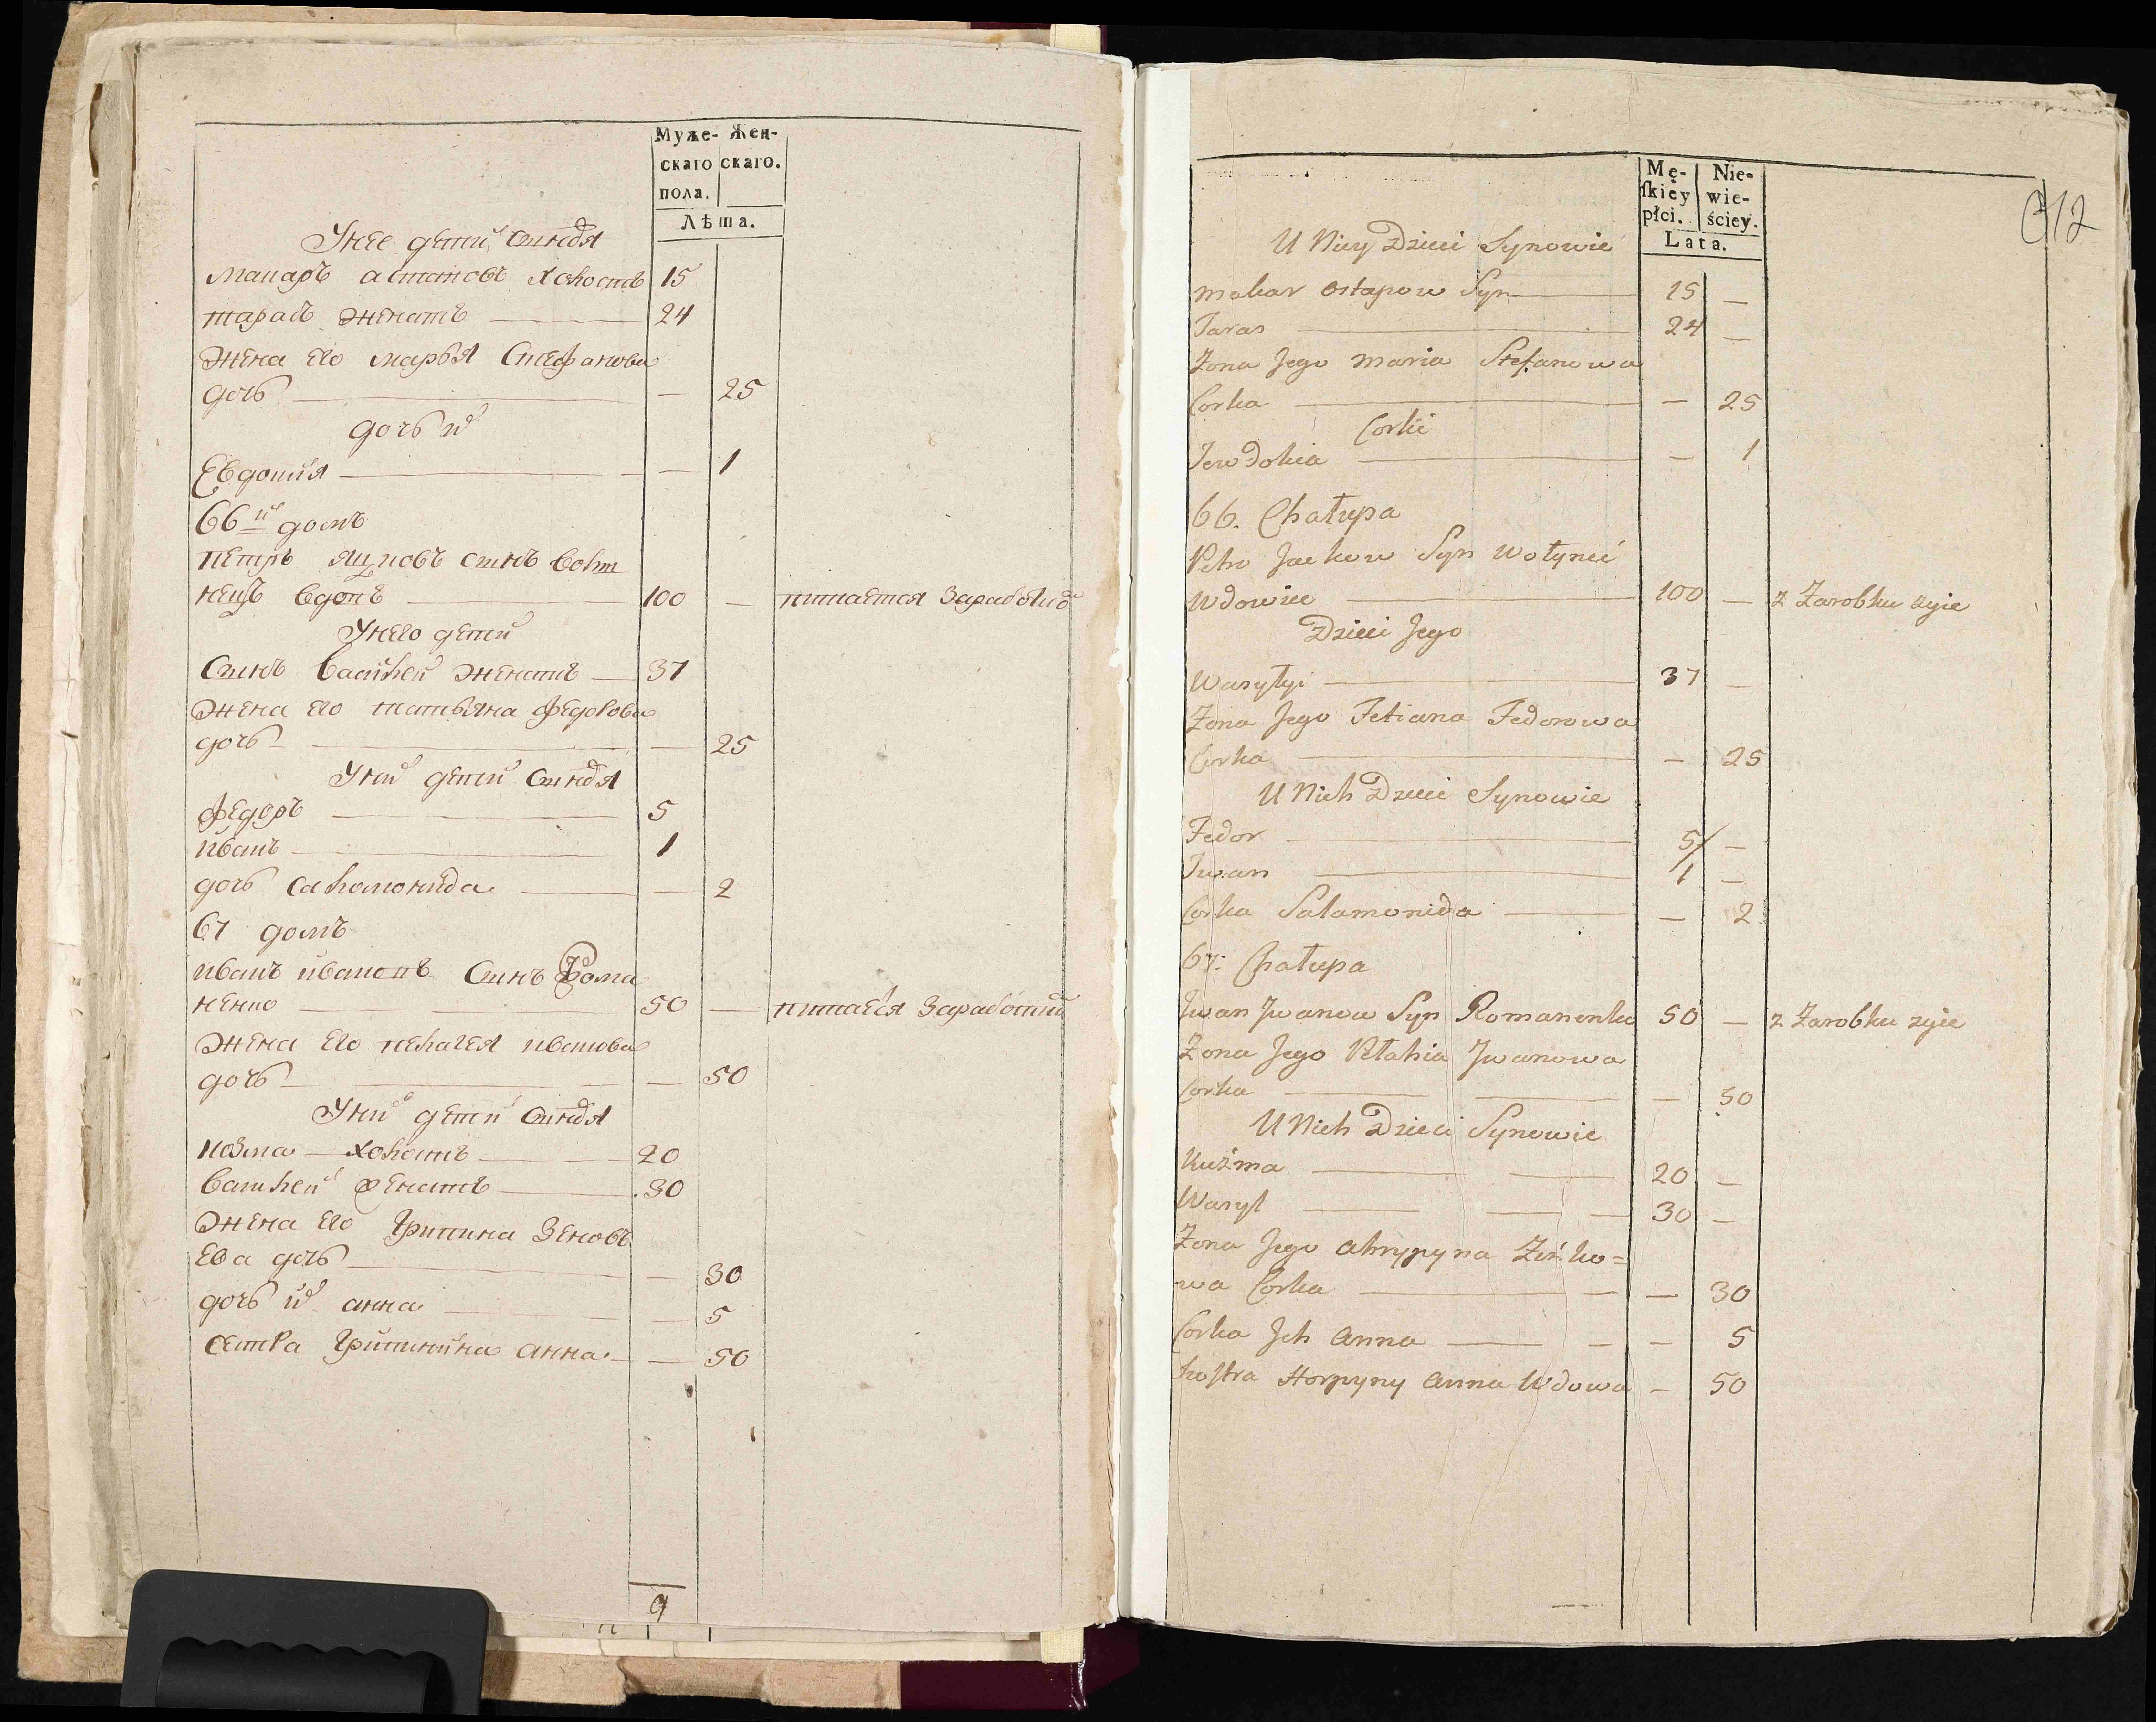 Муже- Жен-
скаго скаго.
пола.
Лѣта.
У нее детей синовя
Макаръ астаповъ холостъ 15
тарасъ женатъ — 24
жена его марья Стефанова
дочь — — 25
дочь их
Евдокия — — 1
66й домъ
петръ яцковъ синъ волын
нецъ вдовъ — 100 — питается Заработков
У него детей
Синъ василей женатъ — 37
жена его татьяна федорова
дочь — — 25
У них детей синовя
федоръ — 5
иванъ — 1
дочь саломонида — — 2
67 домъ
иванъ ивановъ Синъ Рома
ненко — 50 — питается Заработком
жена его пелагея иванова
дочь — — 50
У них детей синовя
козма — холостъ — 20
василей женатъ — 30
жена его Грипина Зеновь
ева дочь — — 30
дочь их анна — — 5
сестра Грипинина анна — — 50
9
Mę- Nie-
ſkiéy wie-
płci. ściey.
Lata.
312
U Niey Dzieci Synowie
Makar Ostapow Syn — 15 —
Taras — 24 —
Zona Jego Maria Stefanowa
Corka — — 25
Corki
Jewdokia — — 1
66. Chałupa
Petro Jackow Syn Wołyneć
Wdowiec — 100 — z Zarobku zyie
Dzieci Jego
Wasylyi — 37 —
Zona Jego Tetiana Fedorowa
Corka — — 25
U Nich Dzieci Synowie
Fedor — 5 —
Iwan — 1 —
Corka Salamonida — — 2
67: Chałupa
Jwan Jwanow Syn Romanenko 50 — z Zarobku zyie
Zona Jego Pełahia Jwanowa
Corka — — — 50
U Nich Dzieci Synowie
Kuźma — — 20 —
Wasyl — — — 30 —
Zona Jego Ahrypyna Zińko=
wa Corka — — — 30
Corka Jch Anna — — — 5
Siostra Horpyny Anna Wdowa — 50